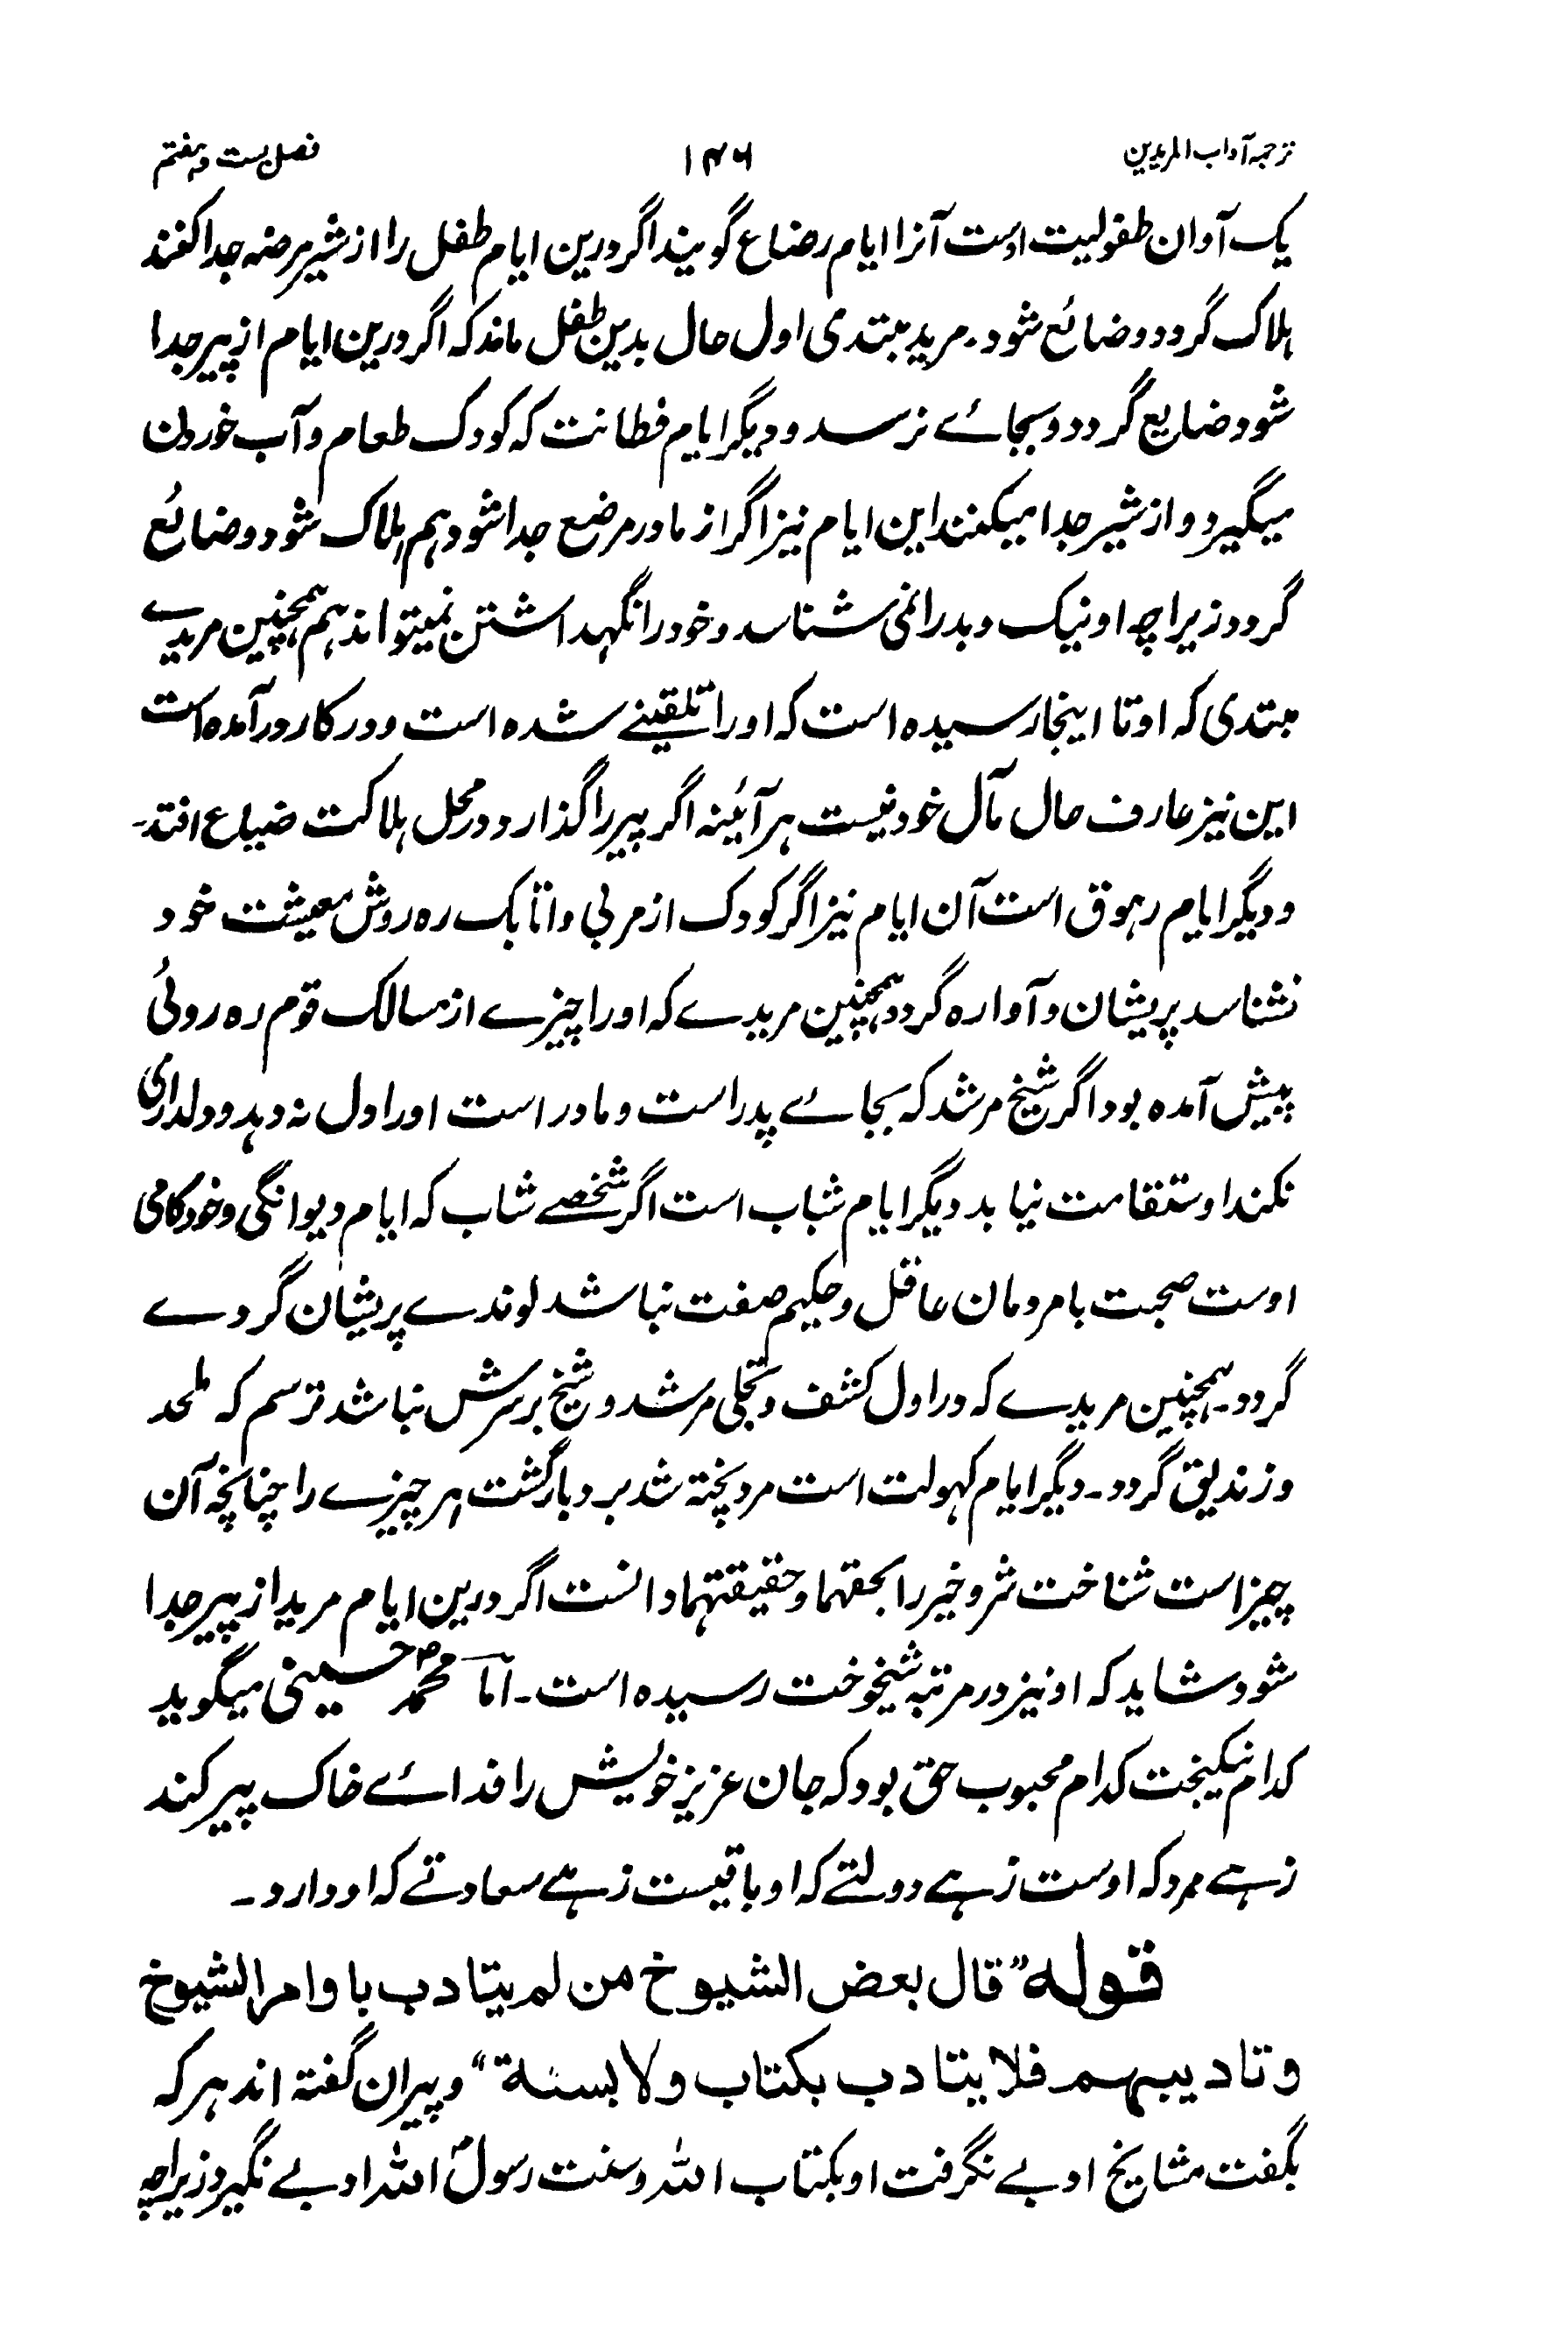 ترجمہ آداب المریدین ۱۴۶ فصل بست وہفتم
یک آوان طفولیت اوست آنرا ایام رضاع گویند اگر درین ایام طفل را از شیر مرضعہ جدا کنند
ہلاک گردد وضائع شود۔ مرید مبتدی اول حال بدین طفل ماند کہ اگر درین ایام از پیر جدا
شود ضایع گردد و بجائے نرسد و دیگر ایام فطانت کہ کودک طعام و آب خوردن
میگیرد و از شیر جدا میکنند این ایام نیز اگر از مادر مرضع جدا شود ہم ہلاک شود وضائع
گردد زیراچہ او نیک و بد را نمی شناسد و خود را نگہداشتن نمیتواند ہم ہمچنین مریدے
مبتدی کہ او تا اینجا رسیدہ است کہ او را تلقینے شدہ است و در کار در آمدہ است
این نیز عارف حال مآل خود نیست ہر آئینہ اگر پیر را گذارد در محل ہلاکت ضیاع افتد۔
و دیگر ایام رہوق است آن ایام نیز اگر کودک از مربی و اتابک رہ روش معیشت خود
نشناسد پریشان و آوارہ گردد ہمچنین مریدے کہ او را چیزے از مسالک قوم رہ روئی
پیش آمدہ بود اگر شیخ مرشد کہ بجاے پدر است و مادر است او را دل نہ دہد و دلداری
نکند او ستقامت نیابد دیگر ایام شباب است اگر شخصے شاب کہ ایام دیوانگی و خود کامی
اوست صحبت با مردمان عاقل و حکیم صفت نباشد لوندے پریشان گردے
گردد۔ ہمچنین مریدے کہ در اول کشف و تجلی مرشد و شیخ بر سرش نباشد ترسم کہ ملحد
و زندیق گردد۔ دیگر ایام کہولت است مرد پختہ شد بر دبار گشت ہر چیزے را چنانچہ آن
چیز است شناخت شر و خیر را بحقہا و حقیقتہا دانست اگر درین ایام مرید از پیر جدا
شود شاید کہ او نیز در مرتبہ شیخوخت رسیدہ است۔ اما محمدؐ حسینی میگوید
کدام نیکبخت کدام محبوب حق بود کہ جان عزیز خویش را فدائے خاک پیر کند
زہے مرد کہ اوست زہے دولتے کہ او باقیست زہے سعادتے کہ او دارد۔
قولہ "قال بعض الشیوخ من لم یتادب باوامر الشیوخ
وتادیبہم فلا یتادب بکتاب ولا بسنة" و پیران گفتہ اند ہر کہ
بگفت مشایخ ادبے نگرفت او بکتاب اللہ و سنت رسولؐ اللہ ادبے نگیرد زیراچہ